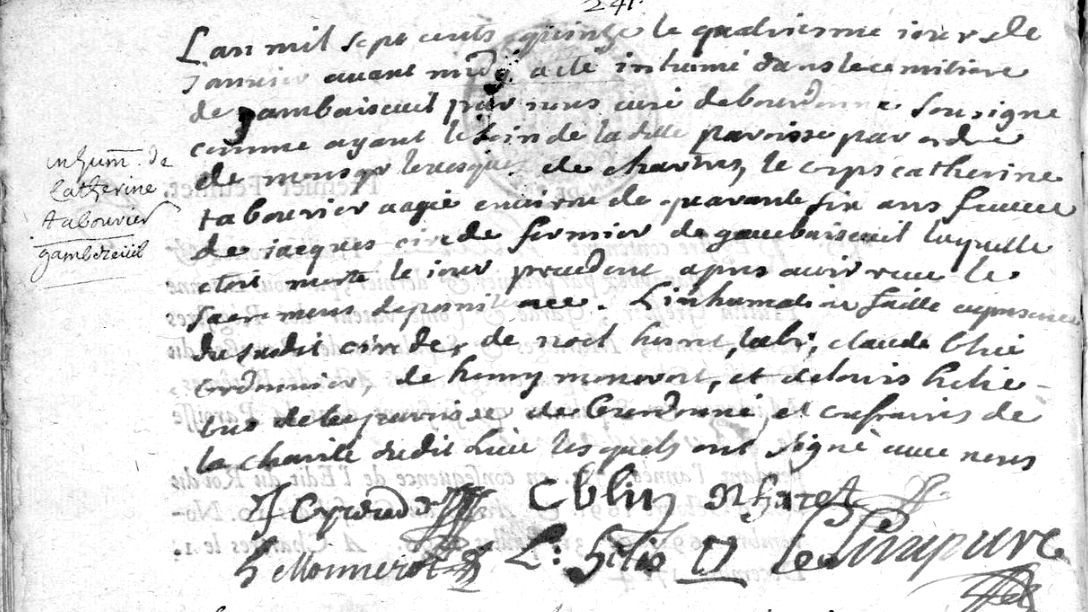 241.
L'an mil sept cents quinze le quatriesme iour de
Januier auant midy a esté inhumé dans le cemitiere
de gambaiseuil par nous curé de bourdonné soussigné
comme ayant le soin de la ditte paroisse par ordre
de monsgr leuesque de chartres, le corps catherine
tabourier aagée enuiron de quarante six ans femme
de jacques cirede fermier de gambaiseuil laquelle
etoit morte le iour precedent apres auoir receu le
sacrement de penitence. L'inhumation faitte en presence
du susdit cirede, de noel huret, claude
cordonnier, de henry monnerot, et de louis helie
tous de la paroisse de bourdonné et confrairis de
la charité dudit lieu lesquels ont signé auec nous
inhum. de
Catherine
tabourier
gambezeüil
C blin N huret
h Monnerot L: helie